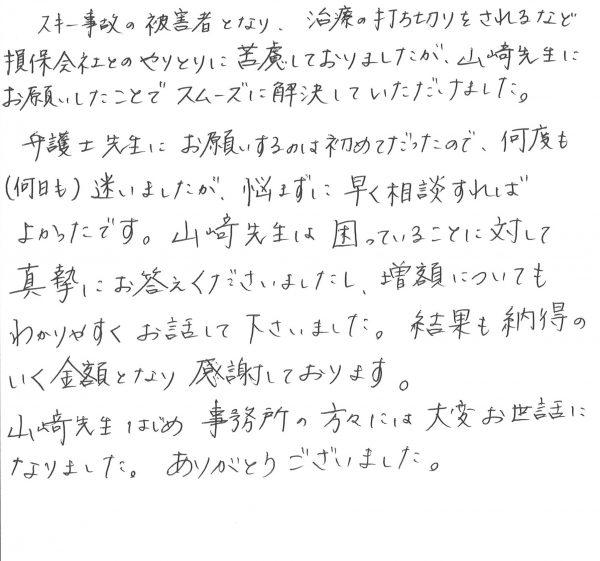 スキー事故の被害者となり、治療の打ち切りをされるなど
損保会社とのやりとりに苦慮しておりましたが、山﨑先生に
お願いしたことでスムーズに解決していただけました。
弁護士先生にお願いするのは初めてだったので、何度も
(何日も)迷いましたが、悩まずに早く相談すれば
よかったです。山﨑先生は困っていることに対して
真摯にお答えくださいましたし、増額についても
わかりやすくお話して下さいました。結果も納得の
いく金額となり感謝しております。
山﨑先生はじめ事務所の方々には大変お世話に
なりました。ありがとうございました。